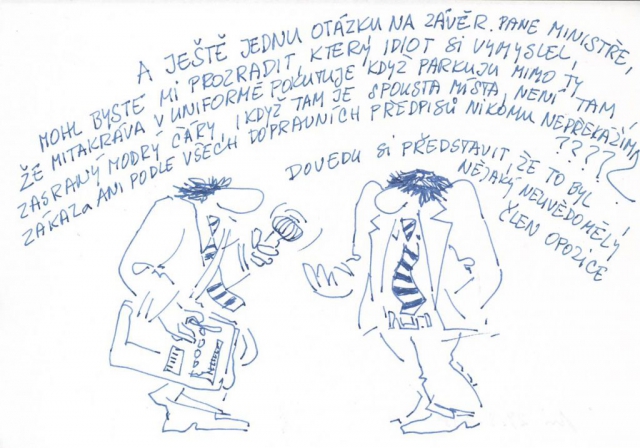 A JEŠTĚ JEDNU OTÁZKU NA ZÁVĚR. PANE MINISTŘE,
MOHL BYSTE MI PROZRADIT, KTERÝ IDIOT SI VYMYSLEL,
ŽE MITAKRÁVA V UNIFORMĚ POKUTUJE KDYŽ PARKUJU MIMO TY
ZASRANÝ MODRÝ ČÁRY, I KDYŽ TAM JE SPOUSTA MÍSTA, NENÍ TAM
ZÁKAZ a ANI PODLE VŠECH DOPRAVNÍCH PŘEDPISŮ NIKOMU NEPŘEKÁŽÍM
????
DOVEDU SI PŘEDSTAVIT, ŽE TO BYL
NĚJAKÝ NEUVĚDOMĚLÝ
ČLEN OPOZICE